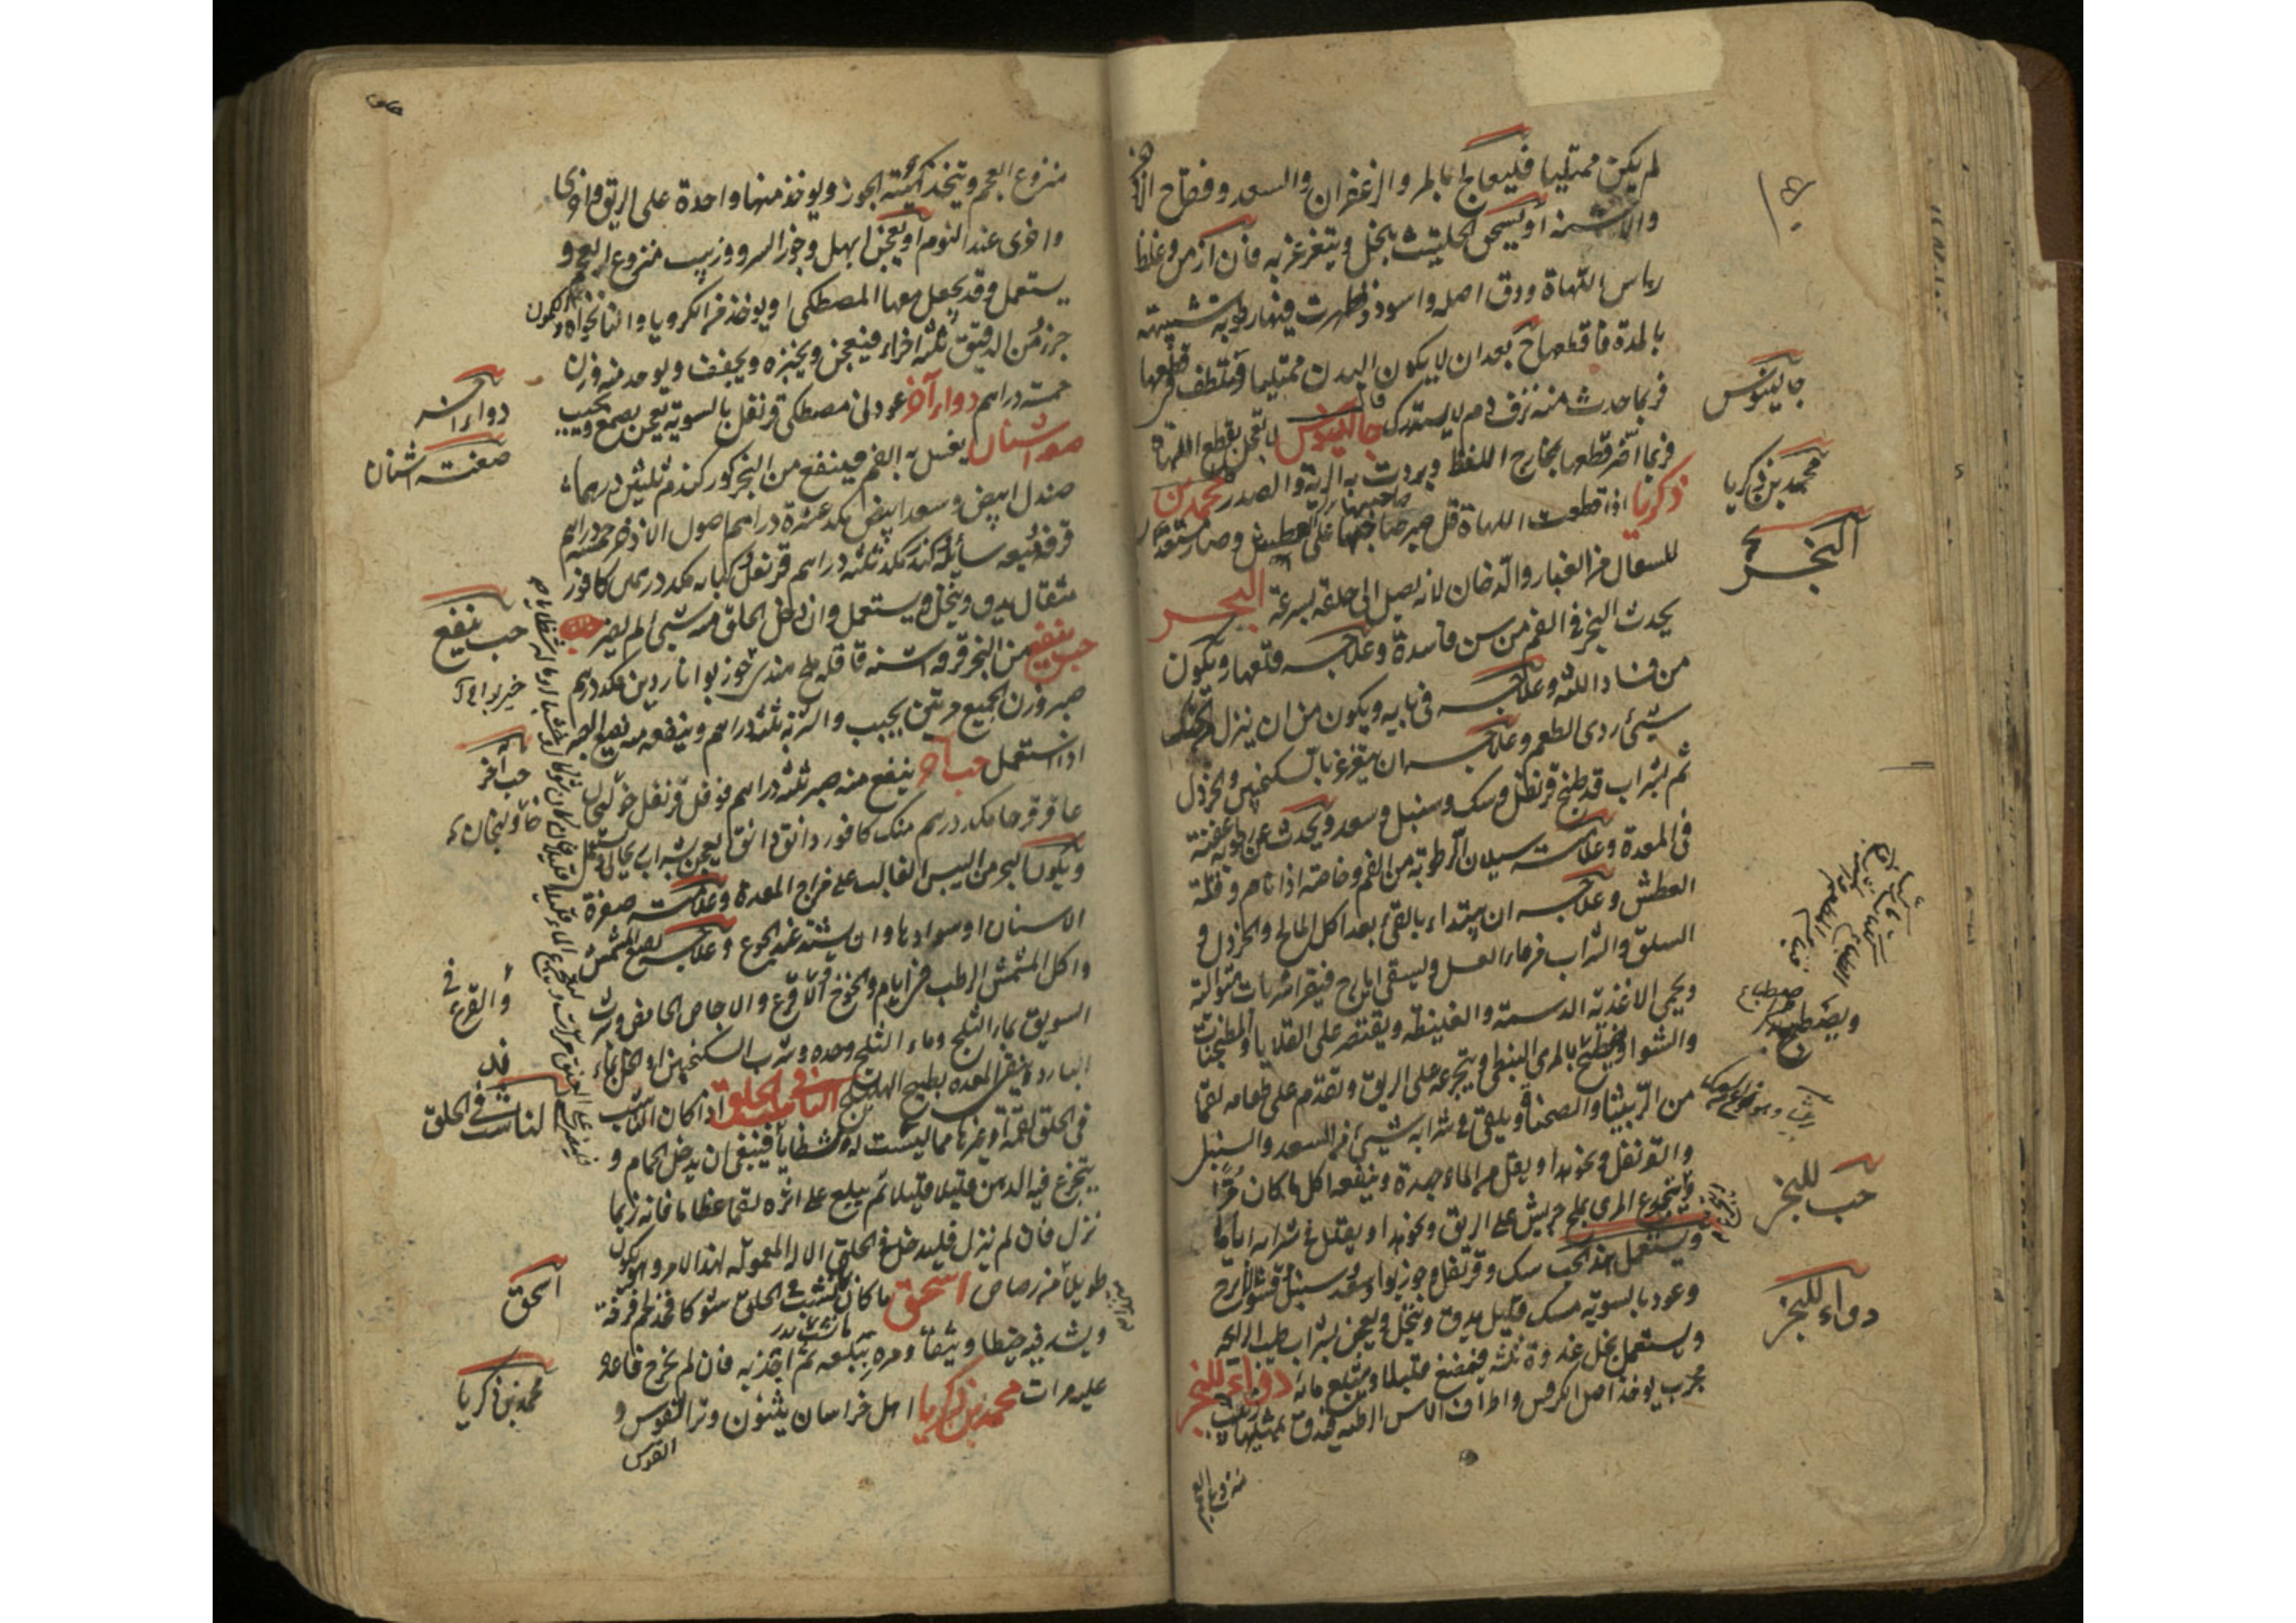 لم يكن ممتليا فليعالج بالمر والزعفران والسعد وفقاح الاذخر
والاشنه او يسحق الحلتيت بخل ويتغرغر به فان ازمن وغلظ
راس اللهاة ودق اصله واسود وظهرت فيها رطوبة شبيهة
بالمدة فاقطعها بعد ان لا يكون البدن ممتليا وتلطف في قطعها
فربما حدث منه نزف دم لا يستدرك جالينوس لا تعجل بقطع اللهاة
فربما اضر قطعها بمخارج اللفظ وبردت به الرية والصدر محمد بن
زكريا اذا قطعت اللهاة قل صبر صاحبها على العطش وصار مستعدا
للسعال من الغبار والدخان لانه يصل الى حلقه بسرعة البخر
يحدث البخر في الفم من سن فاسدة وعلاجه قلعها ويكون
من فساد اللثه وعلاجه في بابه ويكون من ان ينزل الحنك
شيء ردى الطعم وعلاجه ان يتغرغر بالسكنجبين والخردل
ثم بشراب قد طبخ قرنفل وسك وسنبل وسعد ويحدث عن رطوبة عفنة
فى المعدة وعلامته سيلان الرطوبة من الفم وخاصة اذا نام وقلة
العطش وعلاجه ان يبتداء بالقئ بعد اكل المالح والخردل و
السلق والشراب من ماء العسل وليسقى ايارج فيقرا شربات متوالية
ويحمى الاغذية الدسمة والغليظه ويقتصر على القلايا والمطجنات
والشوا ويصطبغ بالمرى النبطى ويتجرعه على الريق ويقدم على طعامه لقما
من الربيثا والصحناة ويلقى في شرابه شيئ من السعد والسنبل
والقرنفل ونحوها ويقل من الماء جهده وينفعه اكل ما كان مرا
وتجرع المرى بملح جريش على الريق ونحوهذا ويقلل في شرابه اياما
ويستعمل هذا الحب سك وقرنفل وجوزبوا وسعد سنبل قشور الاترج
وعود بالسوية مسك قليل يدق وينخل ويعجن بشراب طيب الرايحة
ويستعمل بخل غدوة ثلثه فيمضغ قليلا ويبتلع مائه دواء للبخر
مجرب يوخذ اصل الكرفس واطراف الاس الرطبه فيدق بمثليها زبيب
منزوع العجم
جالينوس
محمد بن زكريا
البخر
حب للبخر
دواء للبخر
منزوع العجم ويتخذ كهيئة الجوز ويوخذ منها واحدة على الريق واخرى
واخرى عند النوم او يعجن ابهل وجوز السرو وزبيب منزوع العجم و
يستعمل وقد يجعل معها المصطكى او يوخذ من الكرويا والنانخواه والكمون
جزء ومن الدقيق ثلثه اجزاء فيعجن ويخبزه ويجفف ويوخذ منه وزن
خمسة دراهم دواء آخر عود نى مصطكى قرنفل بالسوية يعجن بصمغ ويحبب
صفة اشنان يغسل به الفم فينفع من البخر كوركندم ثلثين درهما
صندل ابيض وسعد ابيض مكد عشرة دراهم اصول الاذخر خمسة دراهم
قرفه ميعه سائله كندر مكد ثلثة دراهم قرنفل كبابه مكد درهمين كافور
مثقال يدق وينخل ويستعمل وان دخل الحلق منه شيئ لم يضر
حب ينفع من البخر قرفه اشنه قاقله ملح هندى جوزبوا نارديـن مكد درهم
صبر وزن الجميع مرتين يحبب والشربة ثلثه دراهم وينفعه منه نقيع الصبر
اذا استعمل حب آخر ينفع منه صبر ثلثه دراهم فوفل قرنفل خولنجان
عاقرقرحا مكد درهم مسك كافور دانق دانق يعجن بشراب ريحانى ويستعمل
ويكون البخر من اليبس الغالب على مزاج المعدة وعلامته صفرة
الاسنان او سوادها وان يشتد عند الجوع وعلاجه نقيع المشمش
واكل المشمش الرطب في ايامه والخوخ والاقرع والاجاص الحامض وشرب
السويق بماء الثلج وماء الثلج وحده وشرب السكنجبين او الخل بماء
البارد وينقى المعدة بطبيخ الهليلج الناشب فى الحلق اذا كان الناشب
فى الحلق لقمة او غيرها مما ليست له شظايا فينبغى ان يدخل الحمام و
يتجرع فيه الدهن قليلا قليلا ثم يبلع على اثره لقما عظاما فانه ربما
نزل فان لم ينزل فليدخل فى الحلق الالة المعمولة لهذا الامر ويكون
طويلا من رصاص اسحق ما كان نشب فى الحلق شوكا فخذ لحم فرقه
ويشد فيه خيطا وثيقا ومره يبلعه ثم اجذبه فان لم يخرج فاعده
عليه مرات محمد بن زكريا اهل خراسان يثنون وتر القوس و
القوس
دواء آخر
صفت اشنان
حب ينفع
حب آخر
والقرع
الناشب فى الحلق
اسحق
محمد بن زكريا